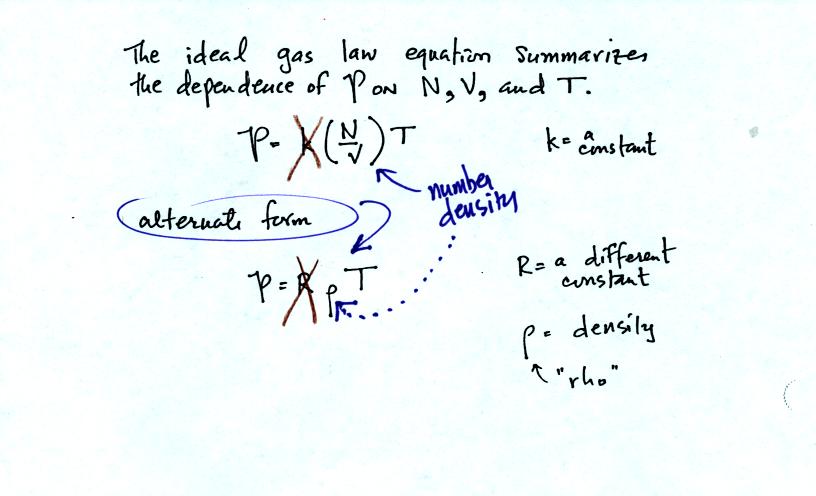 The ideal gas law equation summarizes
the dependence of P on N, V, and T.
P = k (N/V) T
k = a constant
number density
alternate form
P = R ρ T
R = a different constant
ρ = density
↑ "rho"